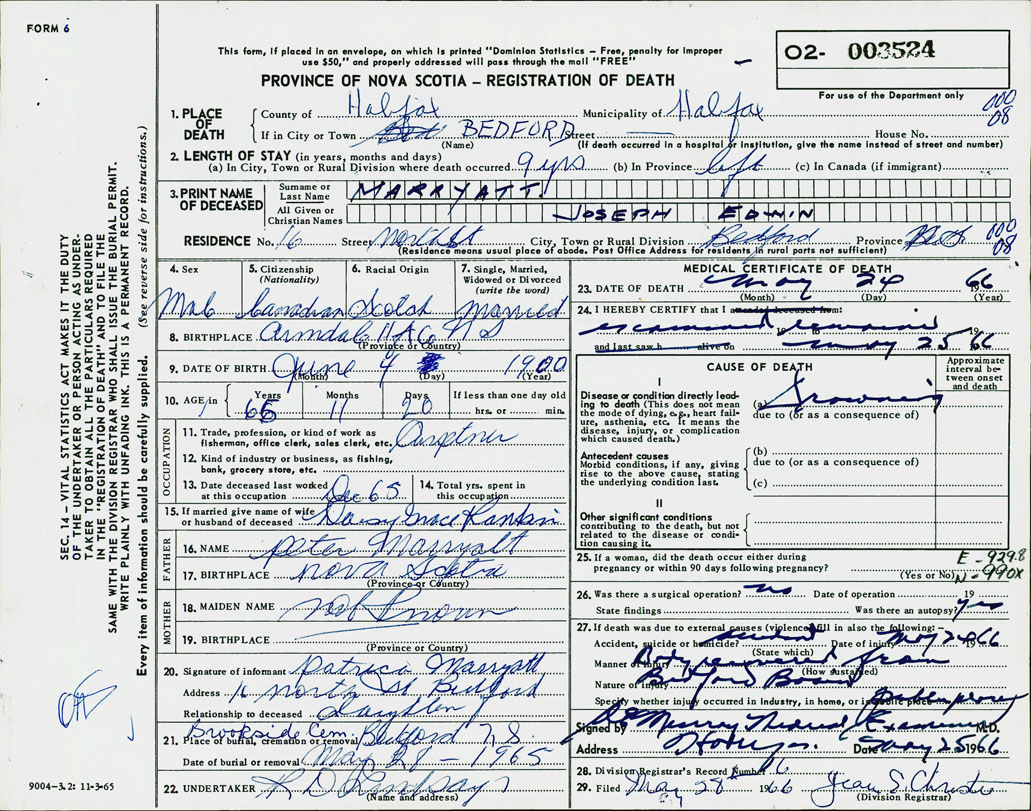 FORM 6
This form, if placed in an envelope, on which is printed "Dominion Statistics – Free, penalty for improper
use $50," and properly addressed will pass through the mail "FREE"
PROVINCE OF NOVA SCOTIA – REGISTRATION OF DEATH
O2- 003524
For use of the Department only
1. PLACE OF DEATH County of Halifax Municipality of Halifax 000 08
If in City or Town BEDFORD Street — House No.
(Name) (If death occurred in a hospital or institution, give the name instead of street and number)
2. LENGTH OF STAY (in years, months and days)
(a) In City, Town or Rural Division where death occurred 9 yrs (b) In Province life (c) In Canada (if immigrant)
3. PRINT NAME OF DECEASED Surname or Last Name MARRYATT
All Given or Christian Names JOSEPH EDWIN
RESIDENCE No. 16 Street North St City, Town or Rural Division Bedford Province 000 08
(Residence means usual place of abode. Post Office Address for residents in rural parts not sufficient)
4. Sex 5. Citizenship (Nationality) 6. Racial Origin 7. Single, Married, Widowed or Divorced (write the word)
Male Canadian Scotch Married
8. BIRTHPLACE Armdale Hfx Co. N S
(Province or Country)
9. DATE OF BIRTH June 4 1900
(Month) (Day) (Year)
10. AGE in Years 65 Months 11 Days 20 If less than one day old hrs. or min.
OCCUPATION
11. Trade, profession, or kind of work as fisherman, office clerk, sales clerk, etc. Carpenter
12. Kind of industry or business, as fishing, bank, grocery store, etc.
13. Date deceased last worked at this occupation Dec 65 14. Total yrs. spent in this occupation
15. If married give name of wife or husband of deceased Daisy Grace Rankin
FATHER
16. NAME Peter Marryatt
17. BIRTHPLACE Nova Scotia
(Province or Country)
MOTHER
18. MAIDEN NAME not known
19. BIRTHPLACE
(Province or Country)
20. Signature of informant Patricia Marryatt
Address 16 North St Bedford
Relationship to deceased daughter
21. Place of burial, cremation or removal Brookside Cem. Bedford N.S.
Date of burial or removal May 28 - 1965
22. UNDERTAKER R D Lindsay
(Name and address)
MEDICAL CERTIFICATE OF DEATH
23. DATE OF DEATH May 24 1966
(Month) (Day) (Year)
24. I HEREBY CERTIFY that I attended deceased from:
examined remains 19
and last saw h alive on May 25 1966
CAUSE OF DEATH
Approximate interval between onset and death
I
Disease or condition directly leading to death (This does not mean the mode of dying, e.g., heart failure, asthenia, etc. It means the disease, injury, or complication which caused death.)
(a) Drowning
due to (or as a consequence of)
Antecedent causes
Morbid conditions, if any, giving rise to the above cause, stating the underlying condition last.
(b)
due to (or as a consequence of)
(c)
II
Other significant conditions
contributing to the death, but not related to the disease or condition causing it.
25. If a woman, did the death occur either during pregnancy or within 90 days following pregnancy? (Yes or No)
E-929.8
N-990X
26. Was there a surgical operation? no Date of operation 19
State findings Was there an autopsy? yes
27. If death was due to external causes (violence) fill in also the following: –
Accident, suicide or homicide? accident Date of injury May 24 1966
(State which)
Manner of injury Body recovered from
(How sustained)
Nature of injury Bedford Basin
Specify whether injury occurred in industry, in home, or in public place
Signed by Murray Medical Examiner M.D.
Address Hfx Date May 25 1966
28. Division Registrar's Record Number 16
29. Filed May 28th 1966 Jean S. Christie
(Division Registrar)
SEC. 14 – VITAL STATISTICS ACT MAKES IT THE DUTY
OF THE UNDERTAKER OR PERSON ACTING AS UNDER-
TAKER TO OBTAIN ALL THE PARTICULARS REQUIRED
IN THE "REGISTRATION OF DEATH" AND TO FILE THE
SAME WITH THE DIVISION REGISTRAR WHO SHALL ISSUE THE BURIAL PERMIT.
WRITE PLAINLY WITH UNFADING INK. THIS IS A PERMANENT RECORD.
Every item of information should be carefully supplied. (See reverse side for instructions.)
9004-3.2: 11-3-65